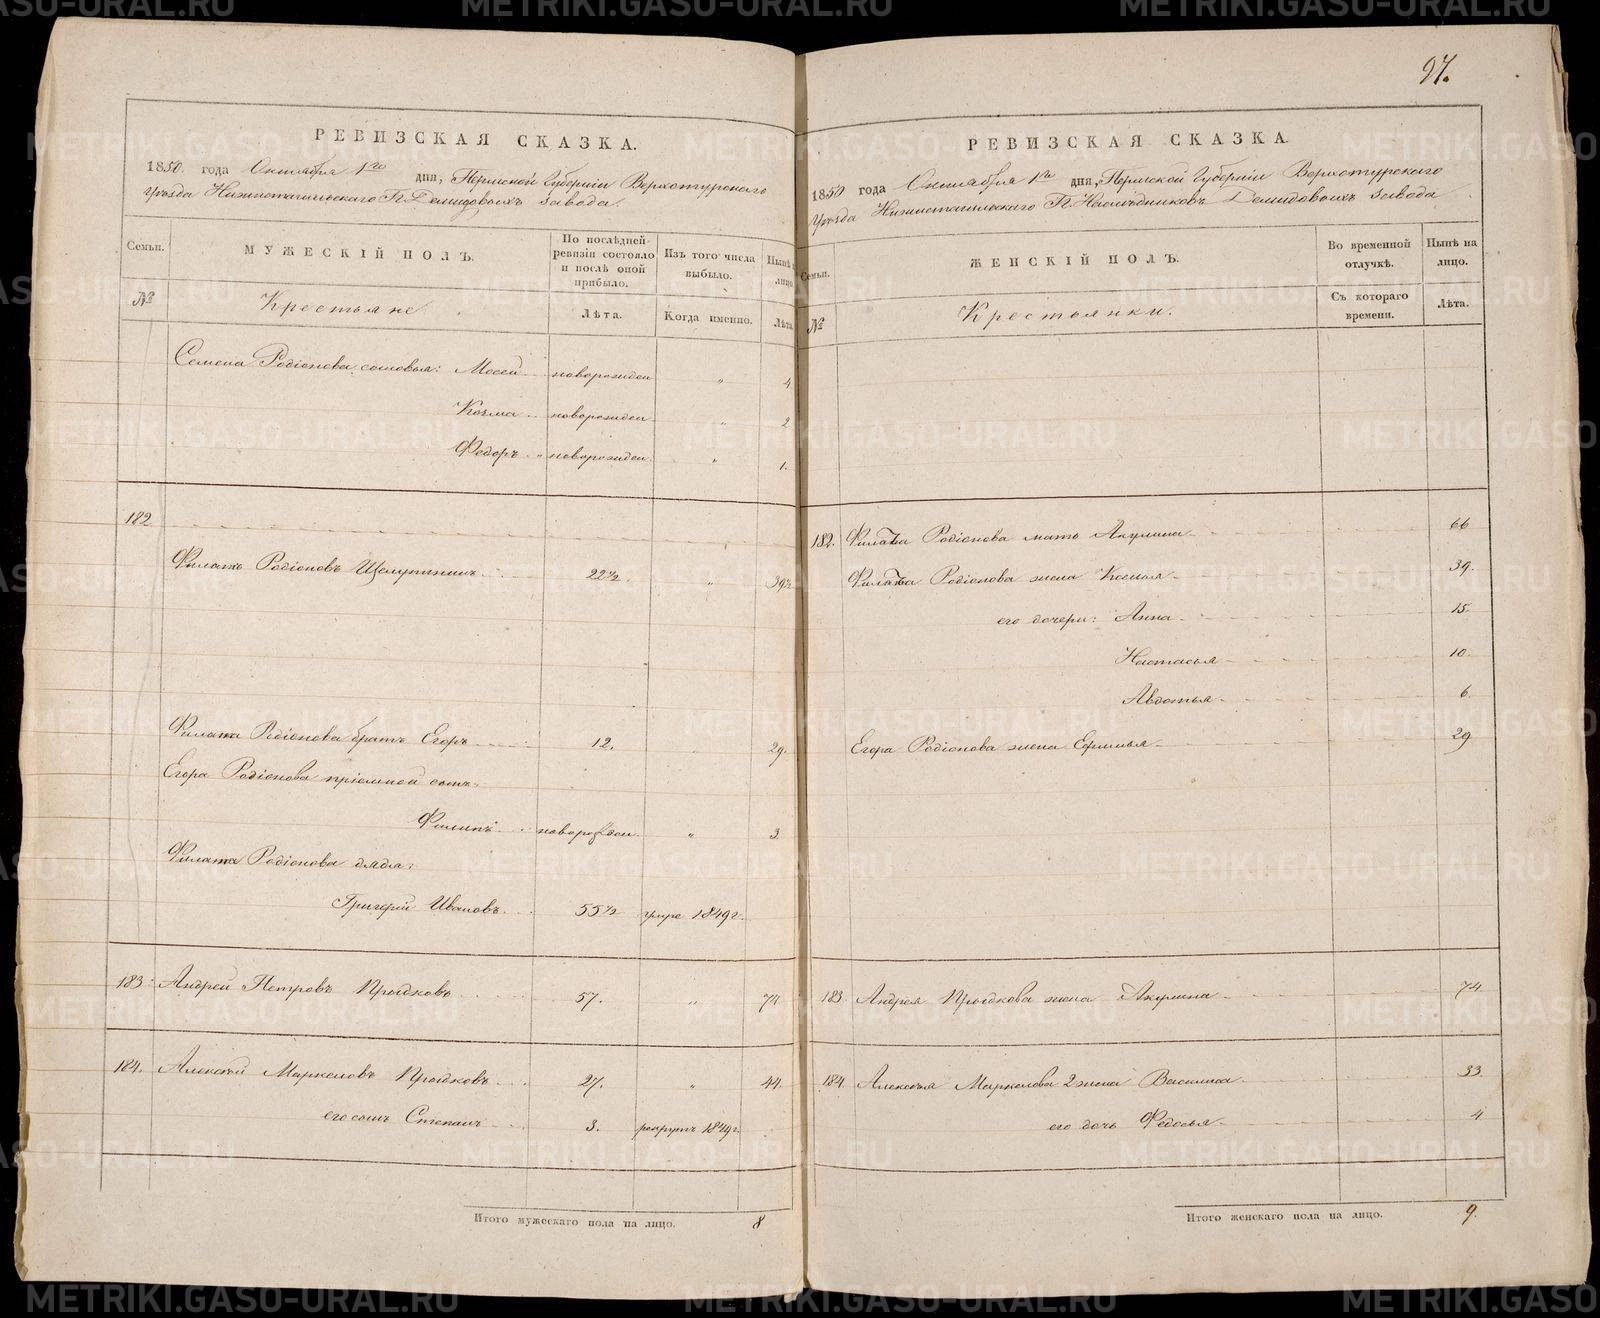 97.
РЕВИЗСКАЯ СКАЗКА.
1850 года Октября 1го дня, Пермской Губернии Верхотурскаго
Уѣзда Нижнетагильскаго Г.Г. Демидовыхъ завода.
Семьи. МУЖЕСКІЙ ПОЛЪ. По послѣдней ревизіи состояло и послѣ оной прибыло. Изъ того числа выбыло. Нынѣ на лицо.
№ Крестьяне Лѣта. Когда именно. Лѣта.
Семена Родіонова сыновья: Мосей новорожден " 4
Козма новорожден " 2
Федоръ новорожден " 1.
182
Филатъ Родіоновъ 22½ " 39½
Филата Родіонова братъ Егоръ 12. 29.
Егора Родіонова пріемной сынъ
Филипъ новорожден " 3
Филата Родіонова дядя:
Григорій Ивановъ 55½ умре 1849 г.
183 Андрей Петровъ 57. " 74
184. Алексѣй Маркеловъ 27. " 44.
его сынъ Степанъ 3. рекрутъ 1849 г.
Итого мужескаго пола на лицо. 8
РЕВИЗСКАЯ СКАЗКА.
1850 года Октября 1го дня, Пермской Губерніи Верхотурскаго
Уѣзда Нижнетагильскаго Г.Г. Наслѣдниковъ Демидовыхъ завода
Семьи. ЖЕНСКІЙ ПОЛЪ. Во временной отлучкѣ. Нынѣ на лицо.
№ Крестьянки. Съ котораго времени. Лѣта.
182. Филата Родіонова мать Акулина 66
Филата Родіонова жена Ксенья 39.
его дочери: Анна 15.
Настасья 10.
Авдотья 6.
Егора Родіонова жена Ефимья 29
183. Андрея жена Акулина 74
184 Алексѣя Маркелова 2 жена Василиса 33.
его дочь Федосья 4
Итого женскаго пола на лицо. 9.
METRIKI.GASO-URAL.RU